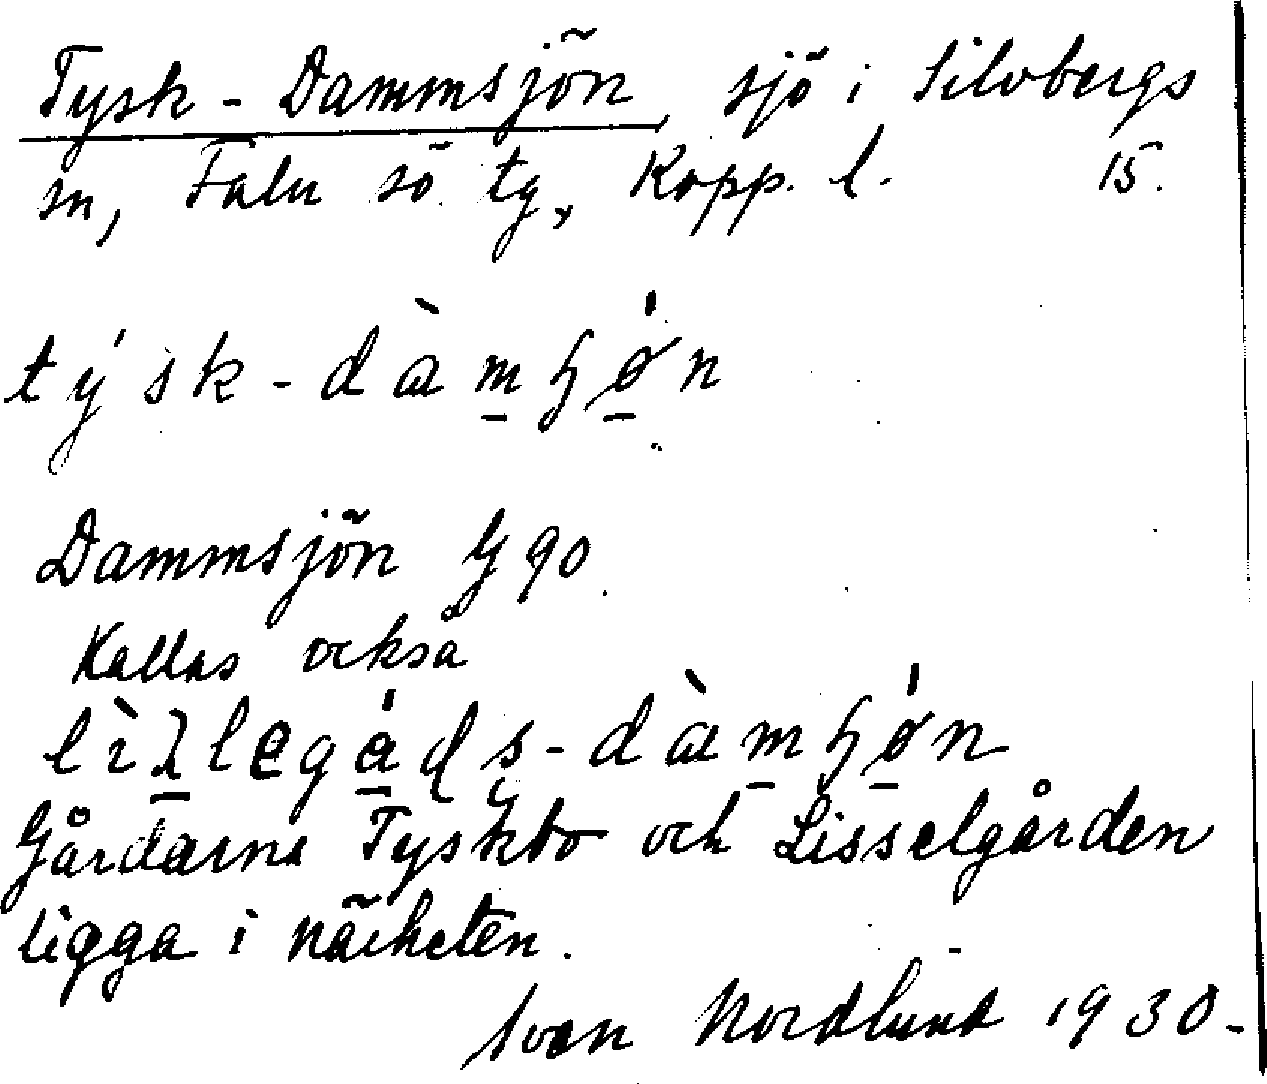 Tysk-Dammsjön, sjö i Silvbergs
sn, Falu sö. tg, Kopp. l. 15.
týsk-dàmɧǿn
Dammsjön G 90.
Kallas också
lìꞎlegáɖʂ-dàmɧǿn
Gårdarna Tyskbo och Lisselgården
ligga i närheten.
Sven Nordlund 1930.